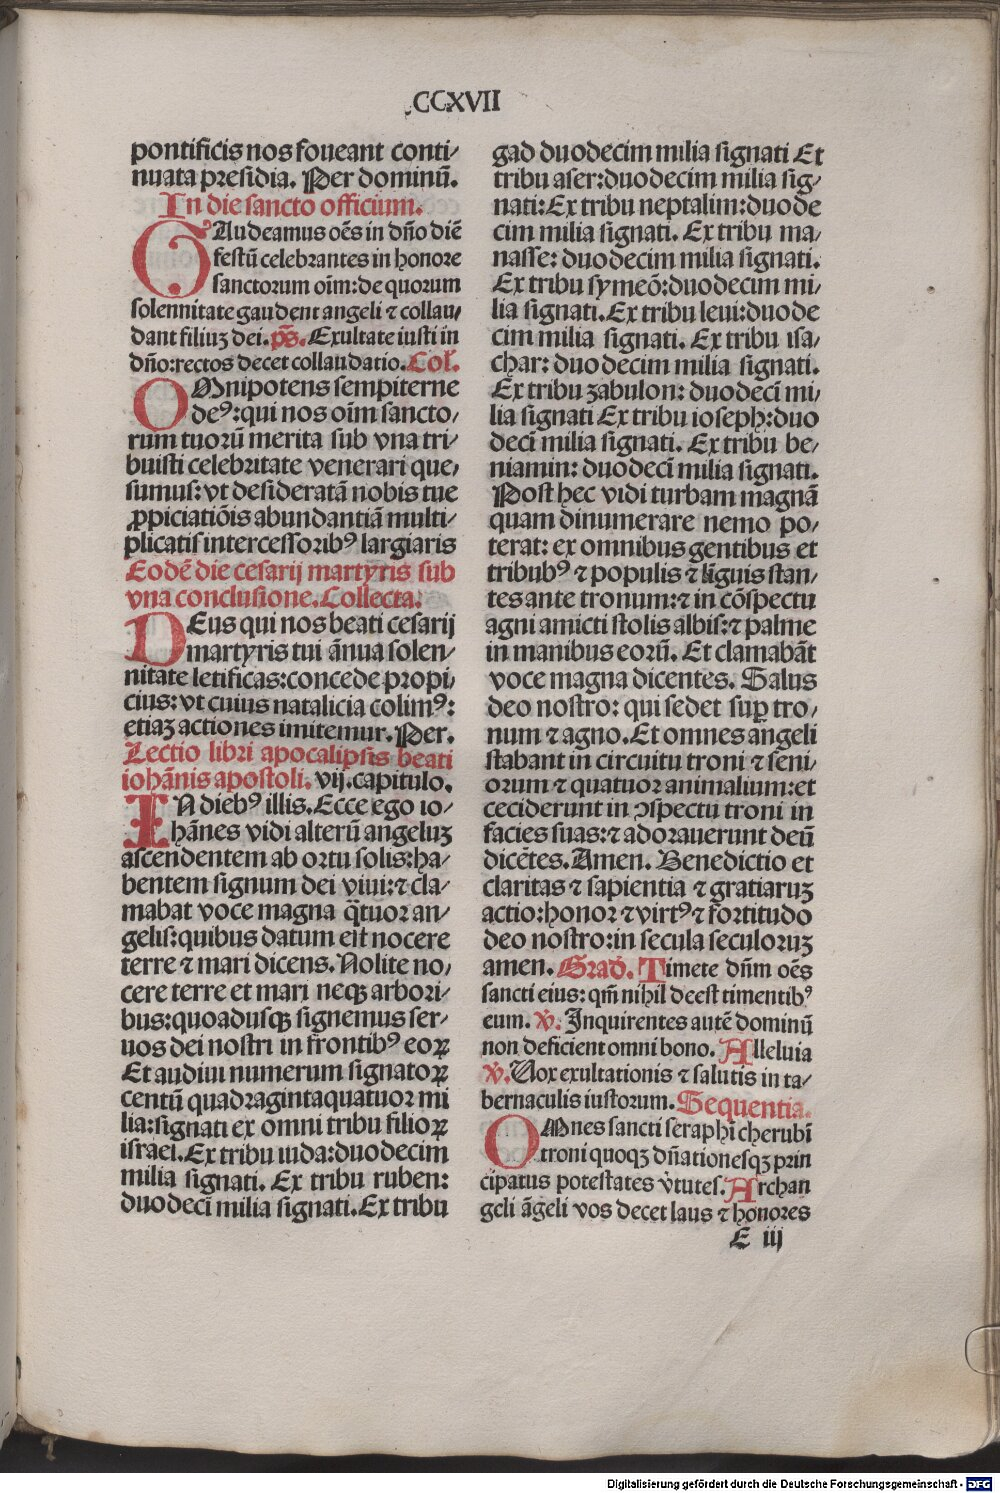 CCXVII
pontificis nos foueant conti⸗
nuata presidia. Per dominū.
In die sancto officium.
GAudeamus oēs in dño diē
festū celebrantes in honore
sanctorum oīm: de quorum
solennitate gaudent angeli ⁊ collau⸗
dant filiuꝫ dei. p̄s. Exultate iusti in
dño: rectos decet collaudatio. Col.
OMnipotens sempiterne
deꝰ: qui nos oīm sancto⸗
rum tuorū merita sub vna tri⸗
buisti celebritate venerari que⸗
sumus: vt desideratā nobis tue
ꝓpiciatiōis abundantiā multi⸗
plicatis intercessoribꝰ largiaris
Eodē die cesarij martyris sub
vna conclusione. Collecta.
DEus qui nos beati cesarij
martyris tui ānua solen⸗
nitate letificas: concede propi⸗
cius: vt cuius natalicia colimꝰ:
etiaꝫ actiones imitemur. Per.
Lectio libri apocalipsis beati
iohānis apostoli. vij. capitulo.
IN diebꝰ illis. Ecce ego io⸗
hānes vidi alterū angeluꝫ
ascendentem ab ortu solis: ha⸗
bentem signum dei viui: ⁊ cla⸗
mabat voce magna q̄tuor an⸗
gelis: quibus datum est nocere
terre ⁊ mari dicens. Nolite no⸗
cere terre et mari neqꝫ arbori⸗
bus: quoadusqꝫ signemus ser⸗
uos dei nostri in frontibꝰ eoꝝ
Et audiui numerum signatoꝝ
centū quadragintaquatuor mi
lia: signati ex omni tribu filioꝝ
israel. Ex tribu iuda: duodecim
milia signati. Ex tribu ruben:
duodecī milia signati. Ex tribu
gad duodecim milia signati Et
tribu aser: duodecim milia sig⸗
nati: Ex tribu neptalim: duode
cim milia signati. Ex tribu ma⸗
nasse: duodecim milia signati.
Ex tribu symeō: duodecim mi⸗
lia signati. Ex tribu leui: duode
cim milia signati. Ex tribu isa⸗
char: duodecim milia signati.
Ex tribu zabulon: duodecī mi⸗
lia signati Ex tribu ioseph: duo
decī milia signati. Ex tribu be⸗
niamin: duodecī milia signati.
Post hec vidi turbam magnā
quam dinumerare nemo po⸗
terat: ex omnibus gentibus et
tribubꝰ ⁊ populis ⁊ līguis stan⸗
tes ante tronum: ⁊ in cōspectu
agni amicti stolis albis: ⁊ palme
in manibus eorū. Et clamabāt
voce magna dicentes. Salus
deo nostro: qui sedet suꝑ tro⸗
num ⁊ agno. Et omnes angeli
stabant in circuitu troni ⁊ seni⸗
orum ⁊ quatuor animalium: et
ceciderunt in ↄspectu troni in
facies suas: ⁊ adorauerunt deū
dicētes. Amen. Benedictio et
claritas ⁊ sapientia ⁊ gratiaruꝫ
actio: honor ⁊ virtꝰ ⁊ fortitudo
deo nostro: in secula seculoruꝫ
amen. Grad. Timete dn̄m oēs
sancti eius: qm̄ nihil deest timentibꝰ
eum. v̄. Inquirentes autē dominū
non deficient omni bono. Alleluia
v̄. Uox exultationis ⁊ salutis in ta⸗
bernaculis iustorum. Sequentia.
OMnes sancti seraphī cherubī
troni quoqꝫ dn̄ationesqꝫ prin
cipatus potestates v̓tutes. Archan
geli āgeli vos decet laus ⁊ honores
E iij
Digitalisierung gefördert durch die Deutsche Forschungsgemeinschaft - DFG